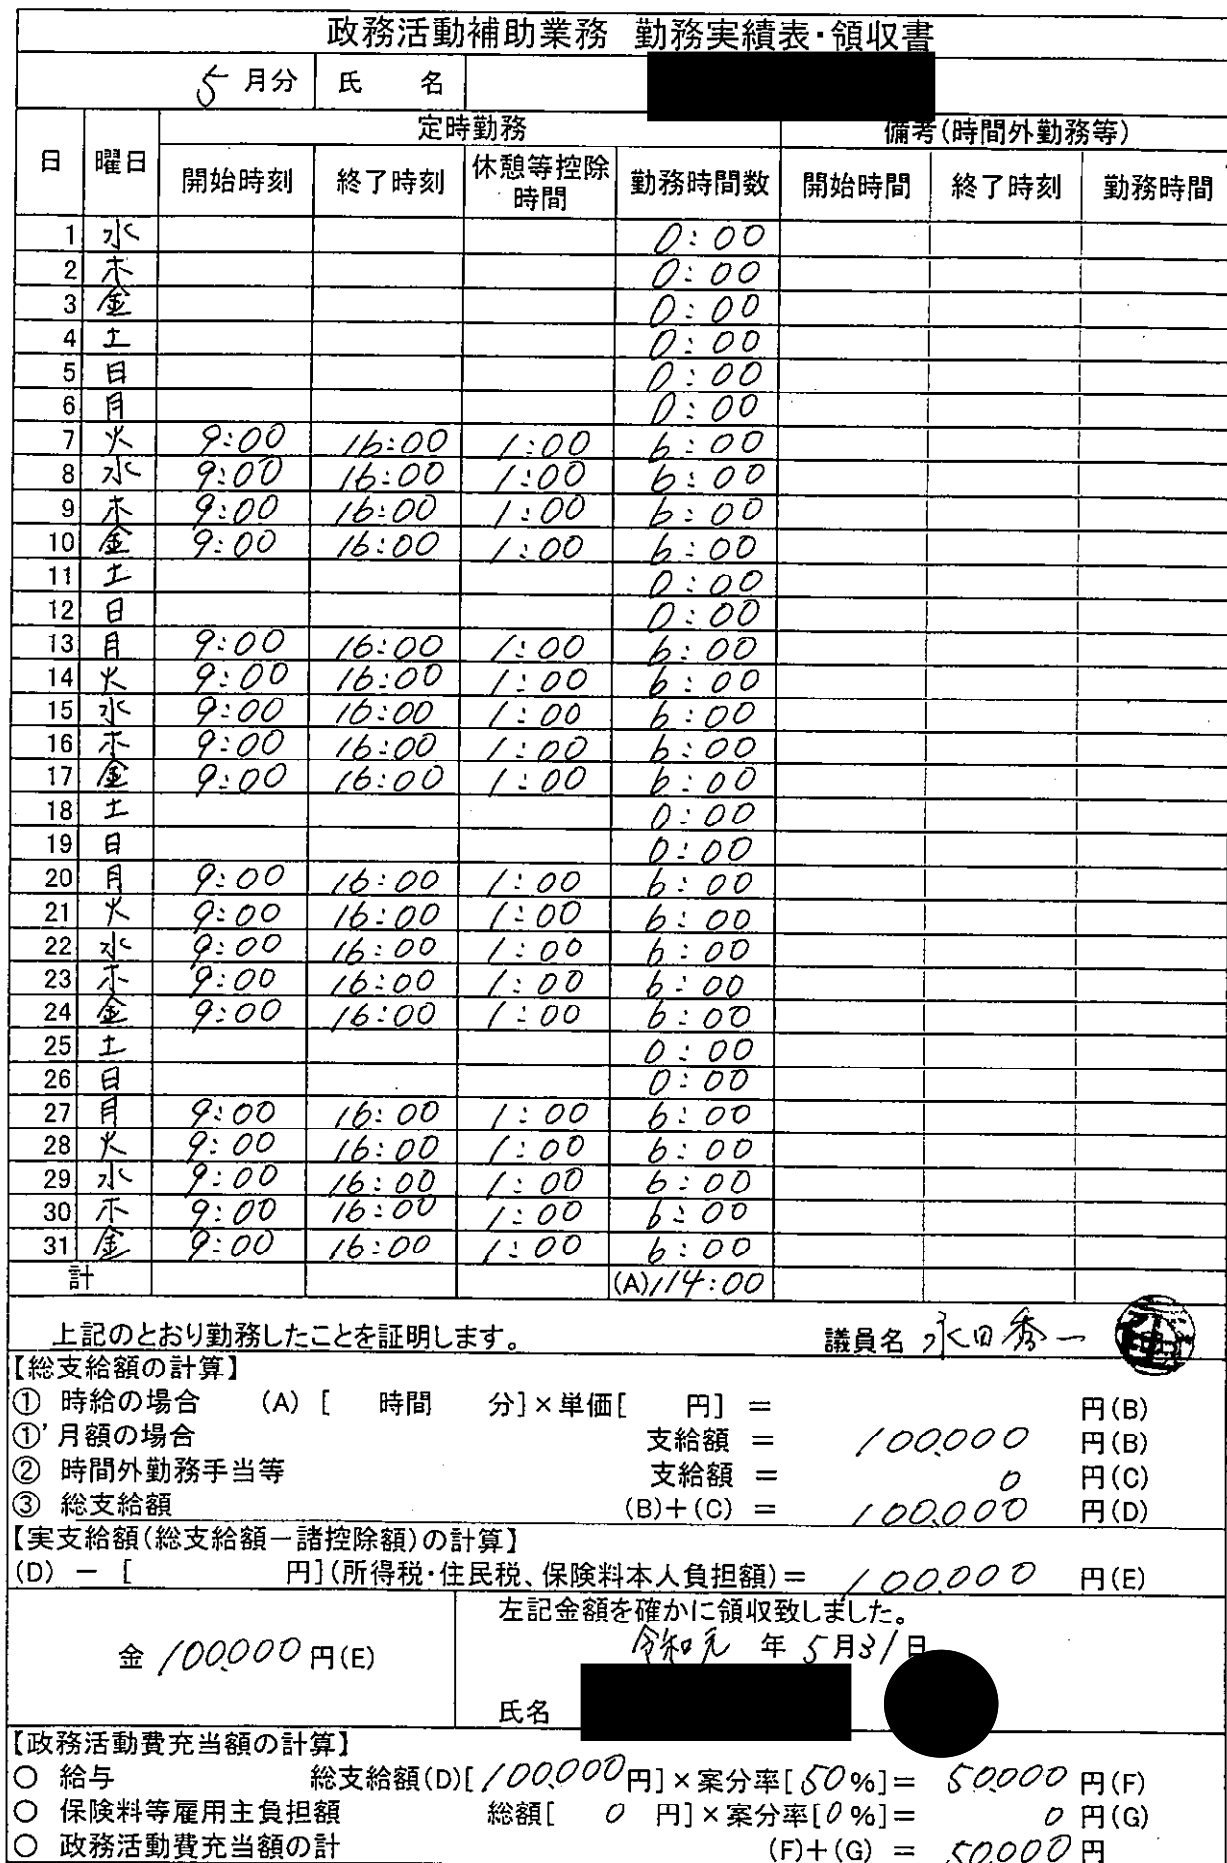 政務活動補助業務 勤務実績表・領収書
5 月分 氏 名
日 曜日 定時勤務 備考(時間外勤務等)
開始時刻 終了時刻 休憩等控除時間 勤務時間数 開始時間 終了時刻 勤務時間
1 水 0:00
2 木 0:00
3 金 0:00
4 土 0:00
5 日 0:00
6 月 0:00
7 火 9:00 16:00 1:00 6:00
8 水 9:00 16:00 1:00 6:00
9 木 9:00 16:00 1:00 6:00
10 金 9:00 16:00 1:00 6:00
11 土 0:00
12 日 0:00
13 月 9:00 16:00 1:00 6:00
14 火 9:00 16:00 1:00 6:00
15 水 9:00 16:00 1:00 6:00
16 木 9:00 16:00 1:00 6:00
17 金 9:00 16:00 1:00 6:00
18 土 0:00
19 日 0:00
20 月 9:00 16:00 1:00 6:00
21 火 9:00 16:00 1:00 6:00
22 水 9:00 16:00 1:00 6:00
23 木 9:00 16:00 1:00 6:00
24 金 9:00 16:00 1:00 6:00
25 土 0:00
26 日 0:00
27 月 9:00 16:00 1:00 6:00
28 火 9:00 16:00 1:00 6:00
29 水 9:00 16:00 1:00 6:00
30 木 9:00 16:00 1:00 6:00
31 金 9:00 16:00 1:00 6:00
計 (A)114:00
上記のとおり勤務したことを証明します。 議員名 永田秀一
【総支給額の計算】
① 時給の場合 (A) [ 時間 分]×単価[ 円] = 円(B)
①' 月額の場合 支給額 = 100,000 円(B)
② 時間外勤務手当等 支給額 = 0 円(C)
③ 総支給額 (B)+(C) = 100,000 円(D)
【実支給額(総支給額-諸控除額)の計算】
(D) - [ 円](所得税・住民税、保険料本人負担額)= 100,000 円(E)
左記金額を確かに領収致しました。
金 100,000 円(E) 令和元 年 5 月 31 日
氏名
【政務活動費充当額の計算】
○ 給与 総支給額(D)[100,000円]×案分率[50%]= 50,000 円(F)
○ 保険料等雇用主負担額 総額[ 0 円]×案分率[0%]= 0 円(G)
○ 政務活動費充当額の計 (F)+(G) = 50,000 円